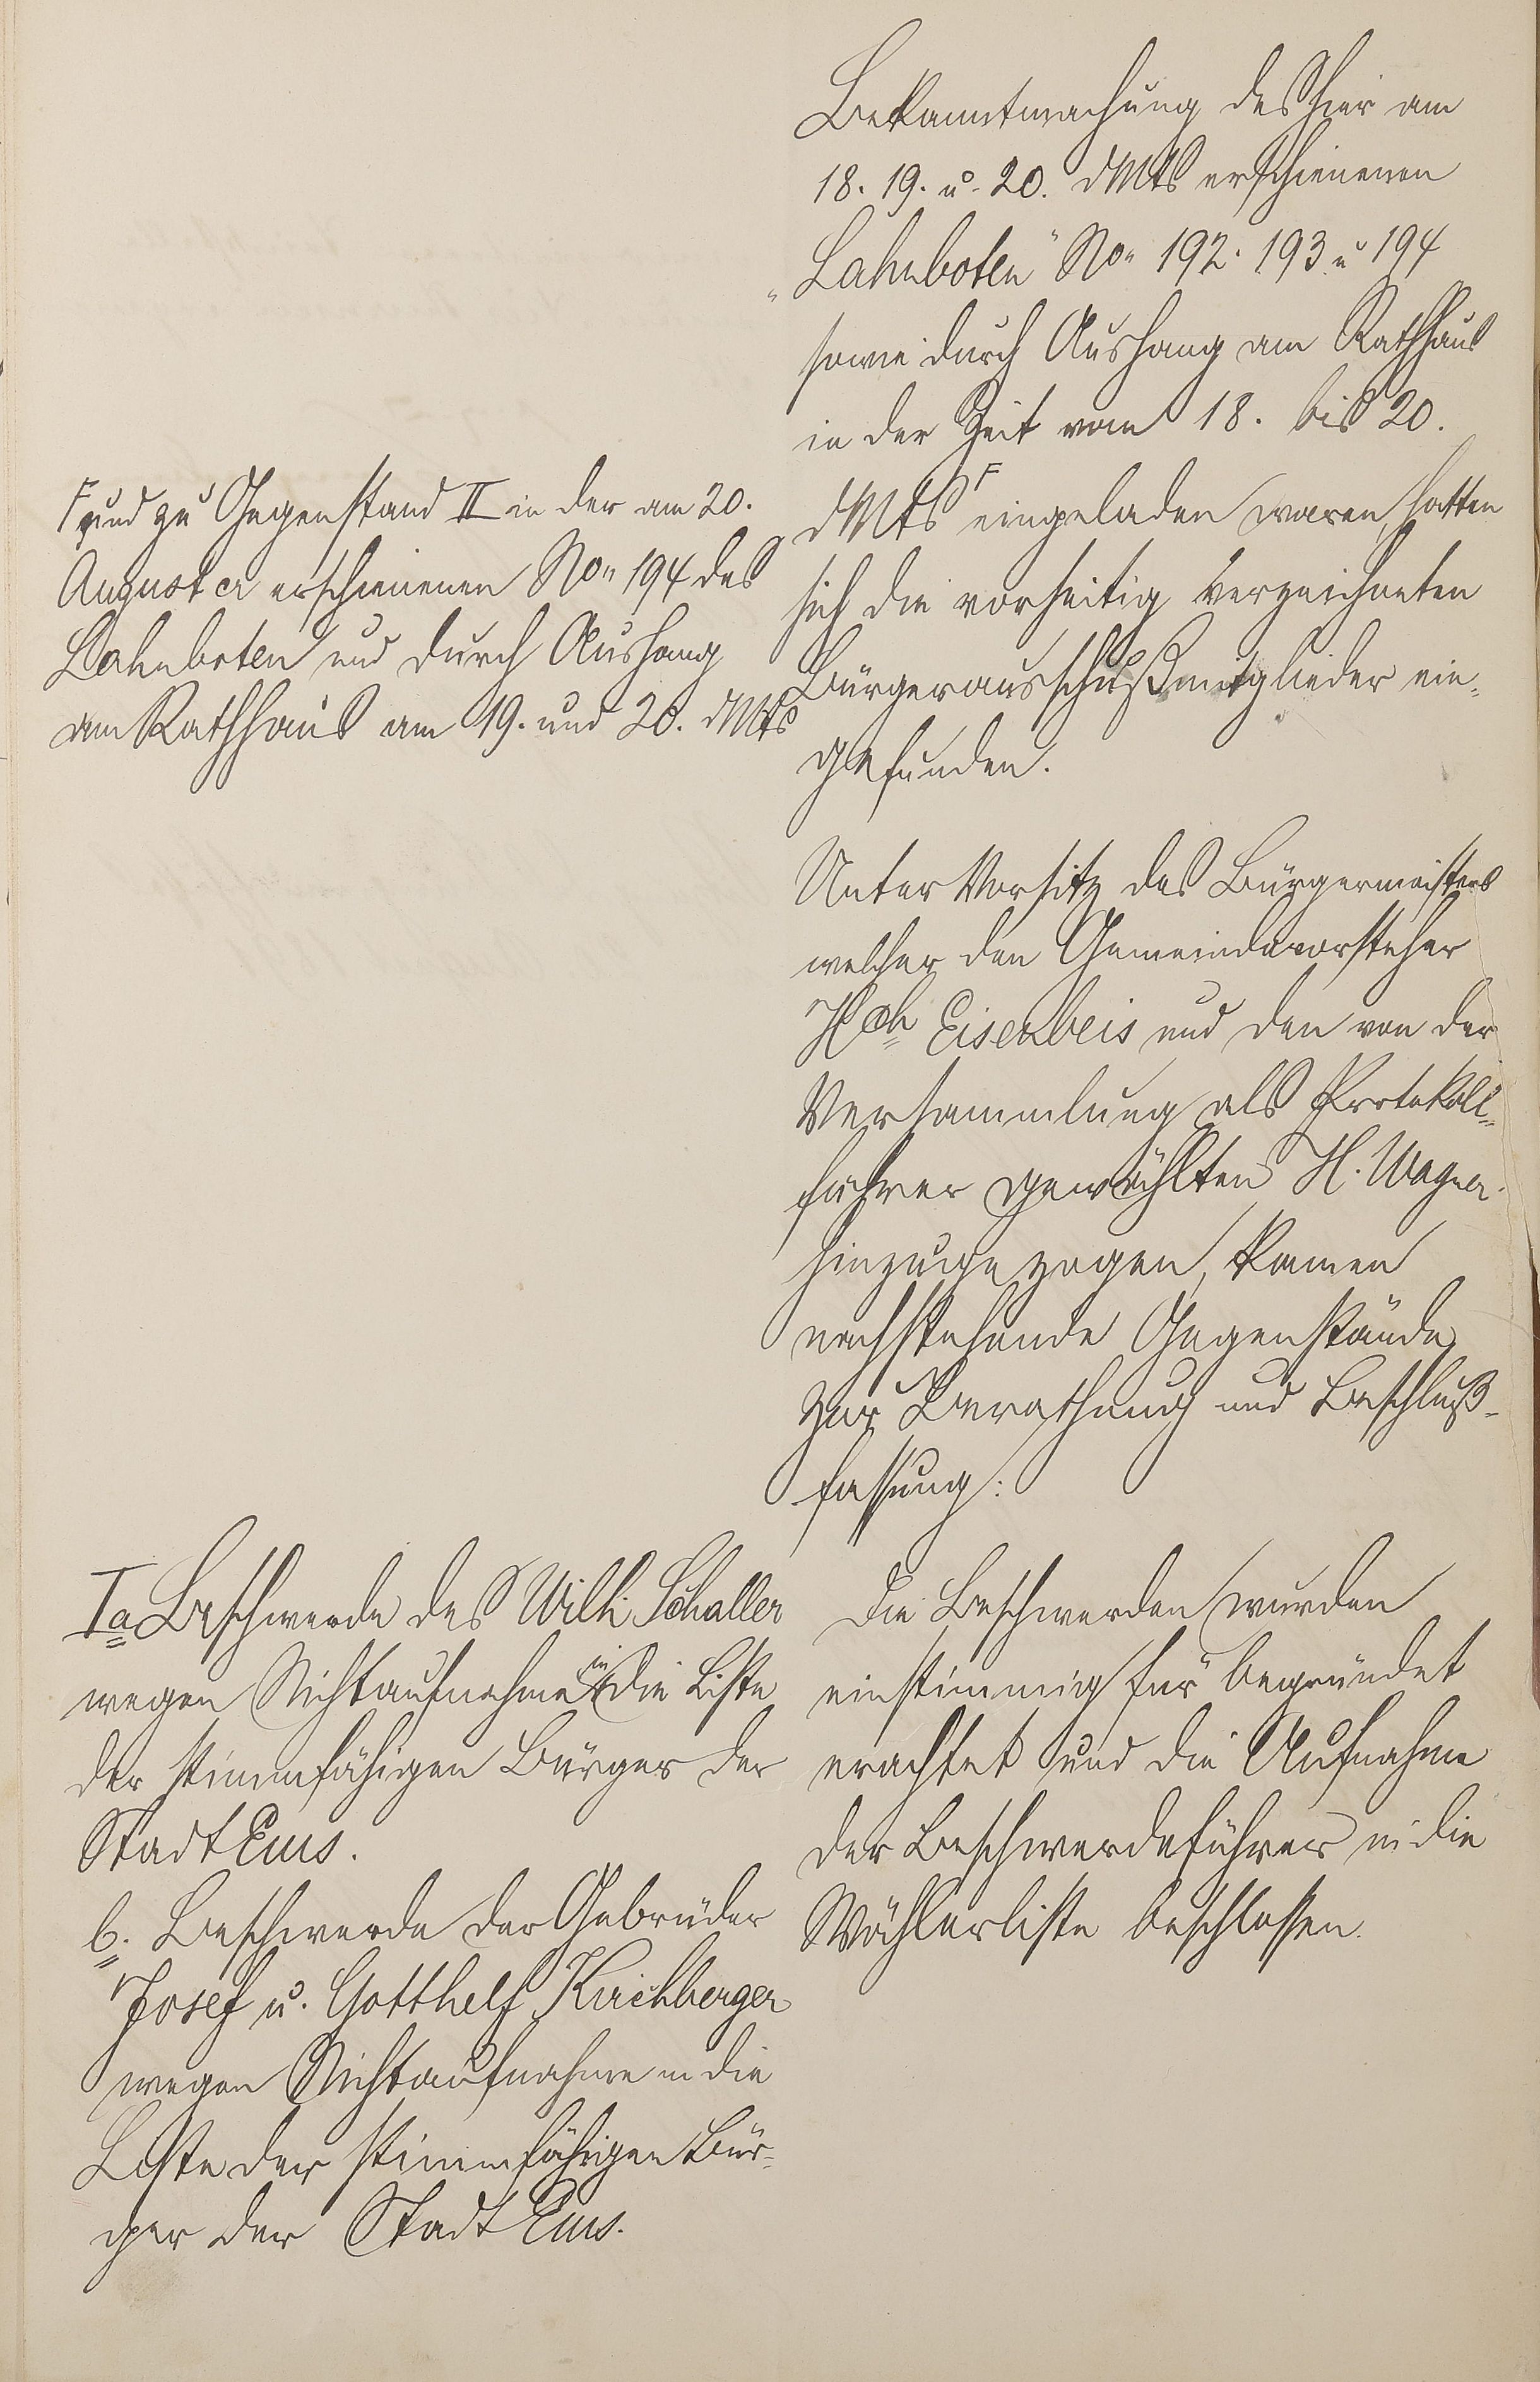 Bekanntmachung des hier am
18. 19. u. 20. dMts erschienenen
„Lahnboten" No. 192. 193 u 194
sowie durch Aushang am Rathhaus
in der Zeit vom 18. bis 20.
dMts F eingeladen waren, hatten
sich die vorseitig verzeichneten
Bürgerausschußmitglieder ein-
gefunden.
F und zu Gegenstand II in der am 20.
August cr erschienenen No. 194 des
Lahnboten und durch Aushang
am Rathhaus am 19. und 20. dMts
Unter Vorsitz des Bürgermeisters
welcher den Gemeindevorsteher
Hch Eisenbeis und den von der
Versammlung als Protokoll-
führer gewählten H. Wagner
hinzugezogen, kamen
nachstehende Gegenstände
zur Berathung und Beschluß-
fassung:
Ia Beschwerde des Wilh. Schaller
wegen Nichtaufnahme in die Liste
der stimmfähigen Bürger der
Stadt Ems.
b. Beschwerde der Gebrüder
Josef u. Gotthelf Kirchberger
wegen Nichtaufnahme in die
Liste der stimmfähigen Bür-
ger der Stadt Ems.
Die Beschwerden wurden
einstimmig für begründet
erachtet und die Aufnahme
der Beschwerdeführer in die
Wählerliste beschlossen.